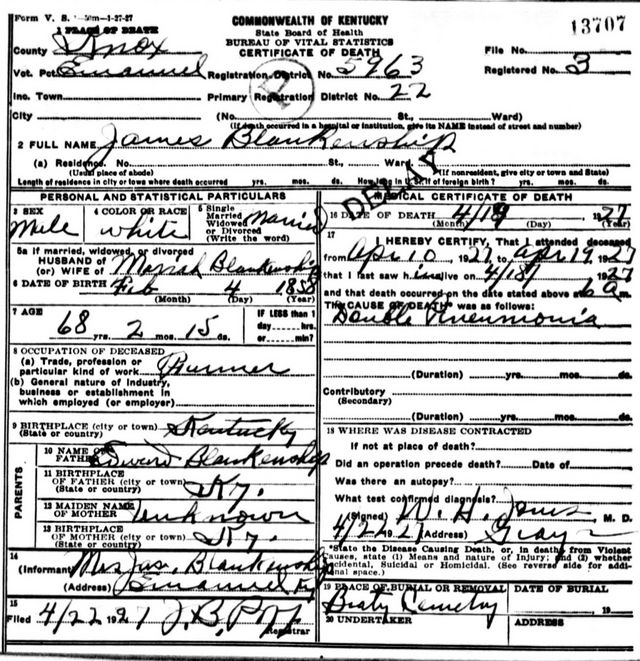 Form V. S. 1-50m-1-27-27
COMMONWEALTH OF KENTUCKY
State Board of Health
BUREAU OF VITAL STATISTICS
CERTIFICATE OF DEATH
13707
1 PLACE OF DEATH
County Knox
File No.
Vot. Pct. Emanuel Registration District No. 5963
Registered No. 3
Inc. Town Primary Registration District No. 22
City (No. St., Ward)
(If death occurred in a hospital or institution, give its NAME instead of street and number)
2 FULL NAME James Blankenship
(a) Residence. No. St., Ward.
(Usual place of abode) (If nonresident, give city or town and State)
Length of residence in city or town where death occurred yrs. mos. ds. How long in U. S. if of foreign birth? yrs. mos. ds.
DELAY
PERSONAL AND STATISTICAL PARTICULARS
3 SEX Male
4 COLOR OR RACE white
5 Single Married Widowed or Divorced (Write the word) Married
5a If married, widowed, or divorced
HUSBAND OF
(or) WIFE of Mariah Blankenship
6 DATE OF BIRTH Feb 4 1858
(Month) (Day) (Year)
7 AGE 68 yrs. 2 mos. 15 ds.
IF LESS than 1 day, hrs. or min.?
8 OCCUPATION OF DECEASED
(a) Trade, profession or
particular kind of work Farmer
(b) General nature of industry,
business or establishment in
which employed (or employer)
9 BIRTHPLACE (city or town)
(State or country) Kentucky
PARENTS
10 NAME OF
FATHER Edward Blankenship
11 BIRTHPLACE
OF FATHER (city or town)
(State or country) Ky.
12 MAIDEN NAME
OF MOTHER unknown
13 BIRTHPLACE
OF MOTHER (city or town)
(State or country) Ky.
14
(Informant) Mrs Jas. Blankenship
(Address) Emanuel Ky
15
Filed 4/22 1927 J. B.
Registrar
MEDICAL CERTIFICATE OF DEATH
16 DATE OF DEATH 4/19 1927
(Month) (Day) (Year)
17
I HEREBY CERTIFY, That I attended deceased
from Apr 10, 1927 to Apr 19, 1927
that I last saw him alive on 4/18/ 1927
and that death occurred on the date stated above at 6 a m.
The CAUSE OF DEATH* was as follows:
Double Pneumonia
(Duration) yrs. mos. ds.
Contributory
(Secondary)
(Duration) yrs. mos. ds.
18 WHERE WAS DISEASE CONTRACTED
If not at place of death?
Did an operation precede death? Date of
Was there an autopsy?
What test confirmed diagnosis?
(Signed) W. H. Jones, M. D.
4/22 1927 (Address) Gray
*State the Disease Causing Death, or, in deaths from Violent
Causes, state (1) Means and nature of Injury; and (2) whether
Accidental, Suicidal or Homicidal. (See reverse side for addi-
tional space.)
19 PLACE OF BURIAL OR REMOVAL
Beaty Cemetry
DATE OF BURIAL
19
20 UNDERTAKER
ADDRESS